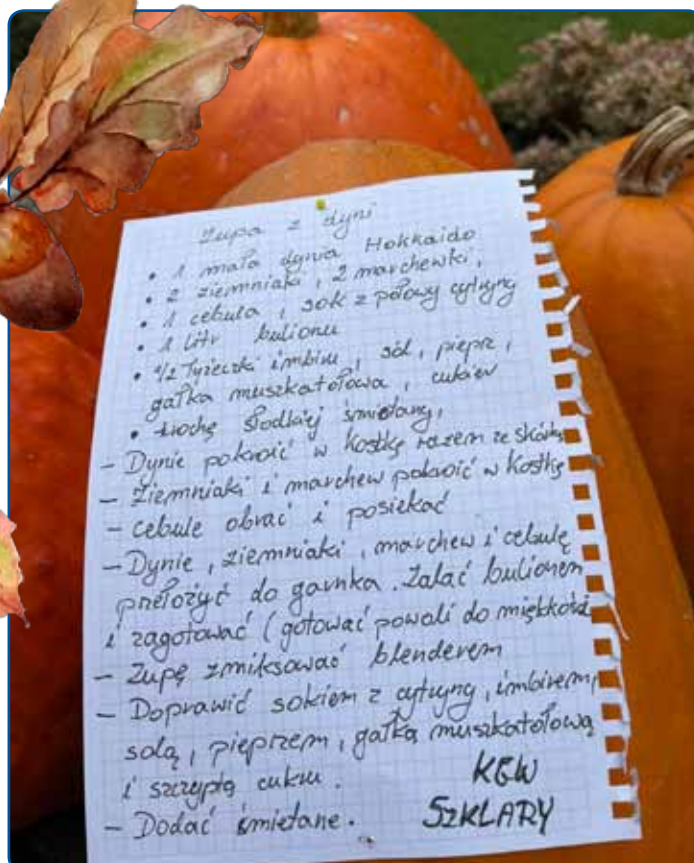 Zupa z dyni
• 1 mała dynia Hokkaido
• 2 ziemniaki, 2 marchewki,
• 1 cebula, sok z połowy cytryny
• 1 litr bulionu
• 1/2 łyżeczki imbiru, sól, pieprz,
gałka muszkatołowa, cukier
• trochę słodkiej śmietany,
- Dynie pokroić w kostkę razem ze skórką
- Ziemniaki i marchew pokroić w kostkę
- cebule obrać i posiekać
- Dynie, ziemniaki, marchew i cebulę
przełożyć do garnka. Zalać bulionem
i zagotować (gotować powoli do miękkości
- Zupę zmiksować blenderem
- Doprawić sokiem z cytryny, imbirem,
solą, pieprzem, gałką muszkatołową
i szczyptą cukru.
- Dodać śmietane.
KGW
SZKLARY